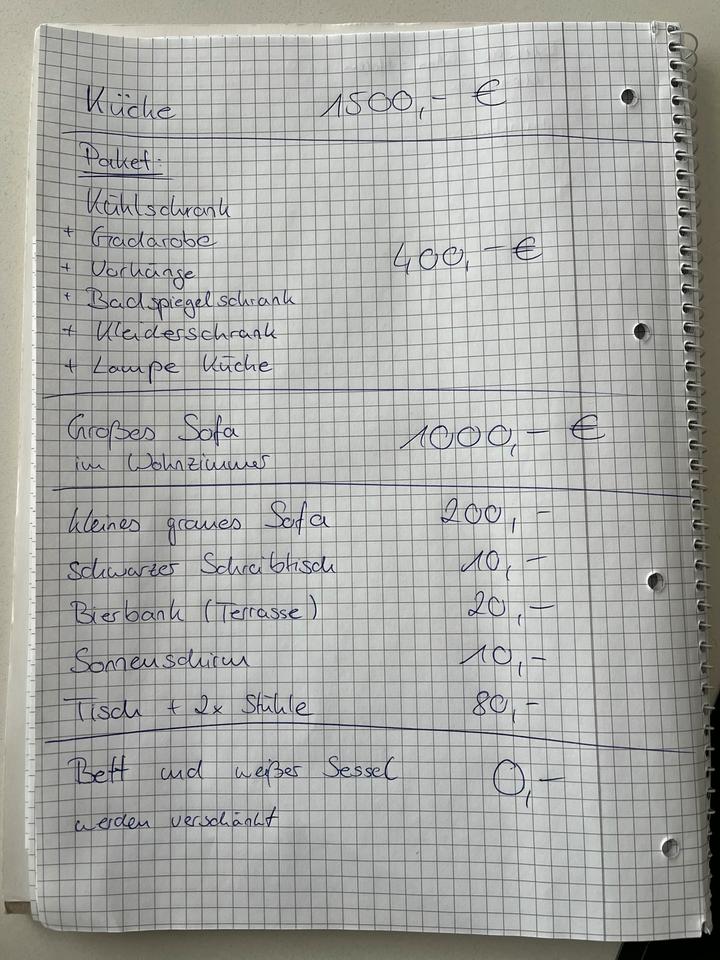 Küche 1500,- €
Paket:
Kühlschrank
+ Gadarobe
+ Vorhänge
+ Badspiegelschrank
+ Kleiderschrank
+ Lampe Küche
400,- €
Großes Sofa
im Wohnzimmer
1000,- €
kleines graues Sofa 200,-
schwarzer Schreibtisch 10,-
Bierbank (Terrasse) 20,-
Sonnenschirm 10,-
Tisch + 2x Stühle 80,-
Bett und weißer Sessel 0,-
werden verschänkt